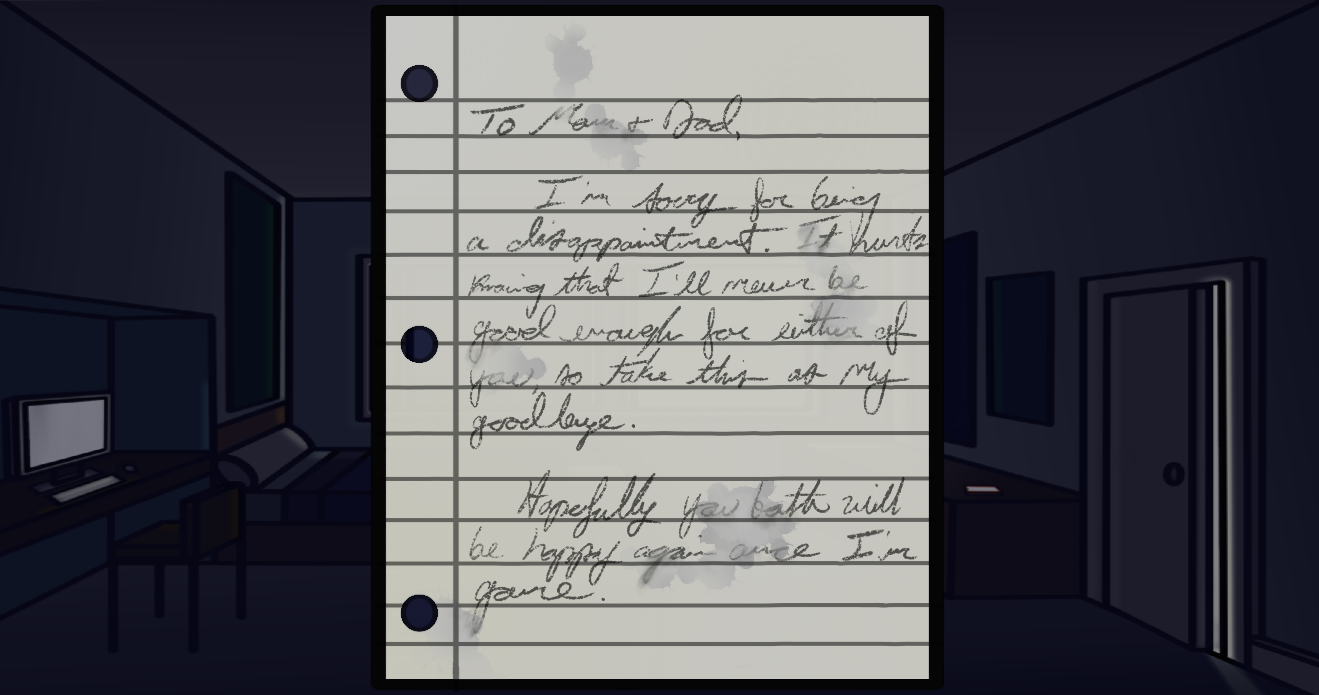 To Mom + Dad,
I'm sorry for being
a disappointment. It hurts
knowing that I'll never be
good enough for either of
you, so take this as my
goodbye.
Hopefully you both will
be happy again once I'm
gone.